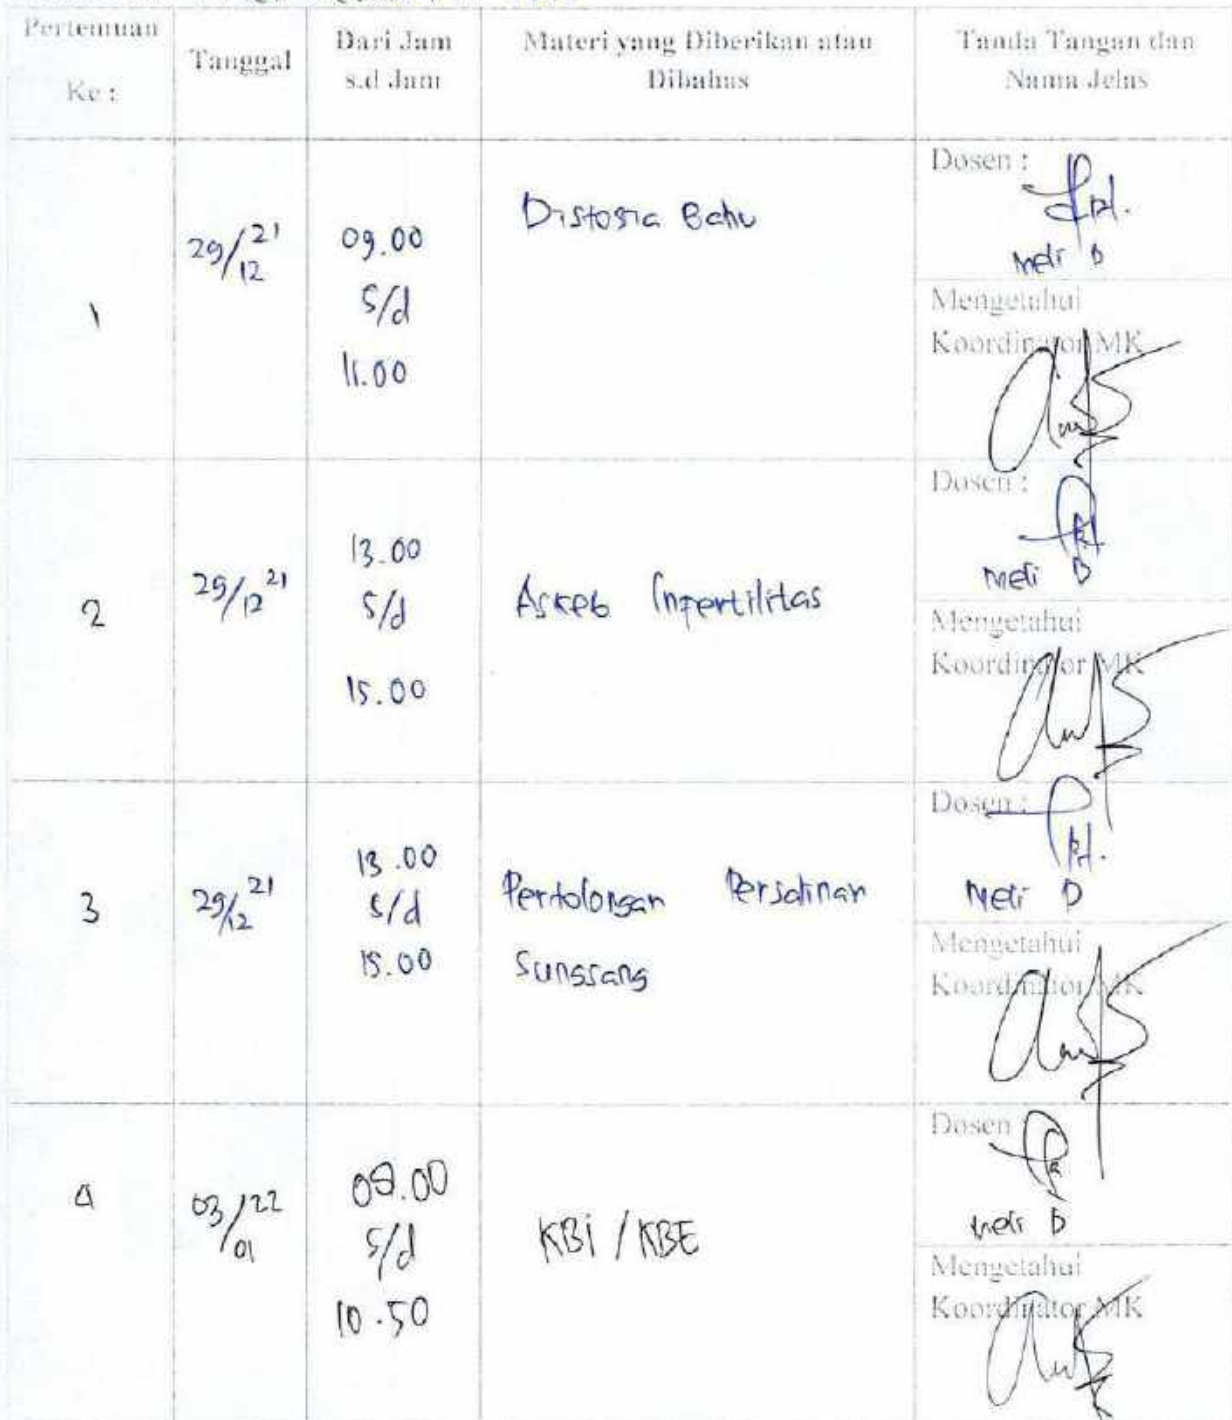 Pertemuan
Ke :
Tanggal
Dari Jam
s.d Jam
Materi yang Diberikan atau
Dibahas
Tanda Tangan dan
Nama Jelas
1
29/12 21
09.00
s/d
11.00
Distosia Bahu
Dosen :
Meli D
Mengetahui
Koordinator MK
2
29/12 21
13.00
s/d
15.00
Askeb Inpertilitas
Dosen :
Meli D
Mengetahui
Koordinator MK
3
29/12 21
13.00
s/d
15.00
Pertolongan Persalinan
Sungsang
Dosen :
Meli D
Mengetahui
Koordinator MK
4
03/01 22
s/d
10.50
KBi / KBE
Dosen
Meli D
Mengetahui
Koordinator MK